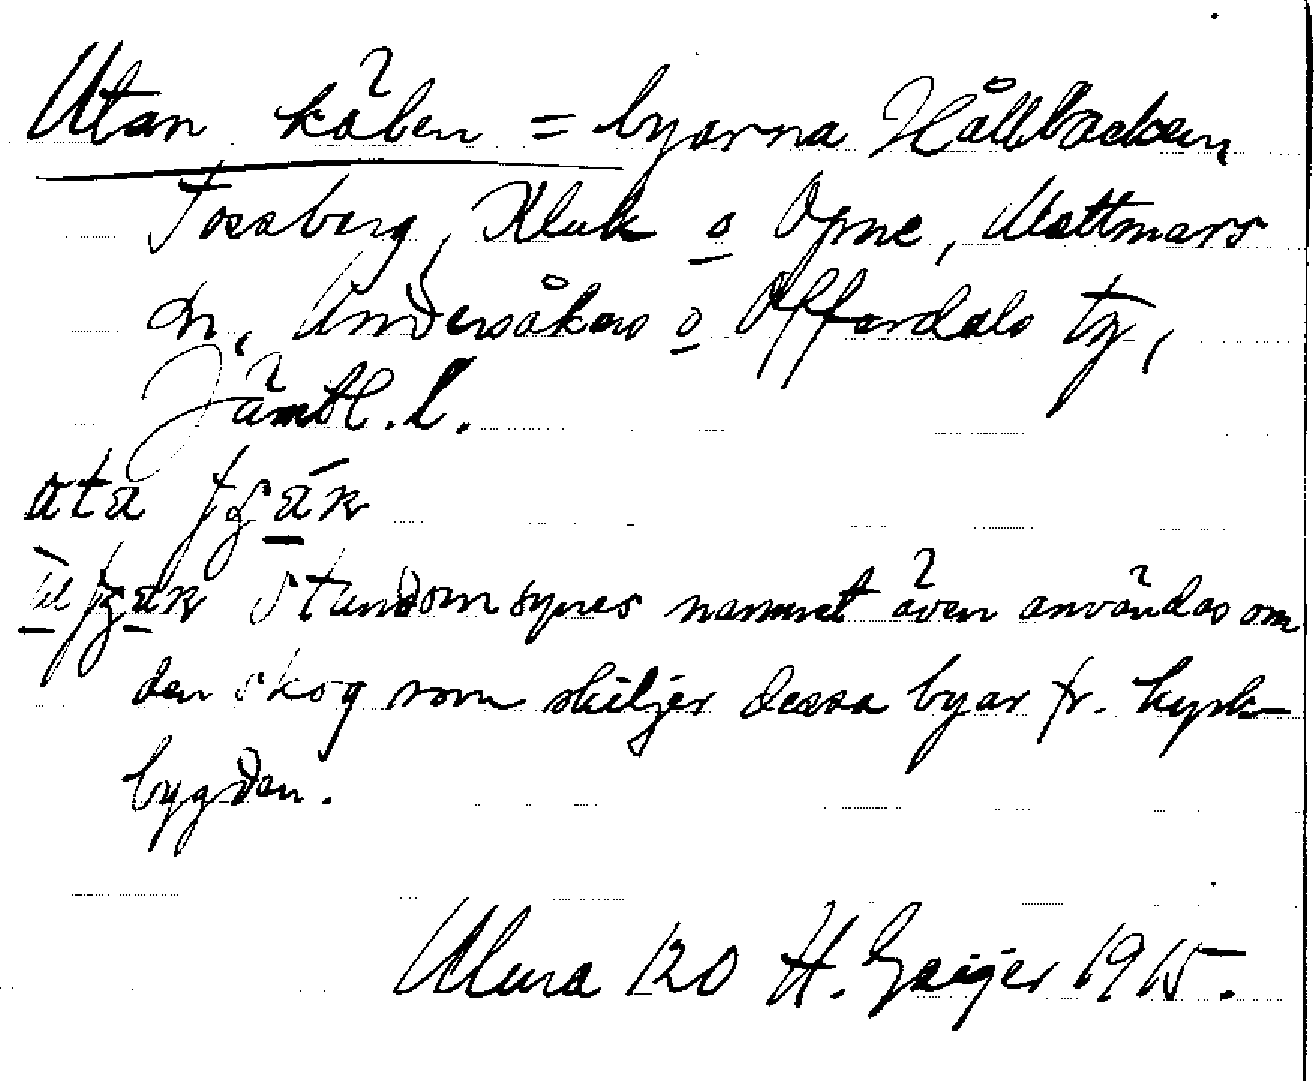 Utan kölen = byarna Hållbacken,
Tossberg, Kluk o Opne, Mattmars
sn, Undersåkers o Offerdals tg,
Jämtl. l.
Stundom synes namnet även användas om
den skog som skiljer dessa byar fr. kyrk-
bygden.
120 H. Geijer 1915.